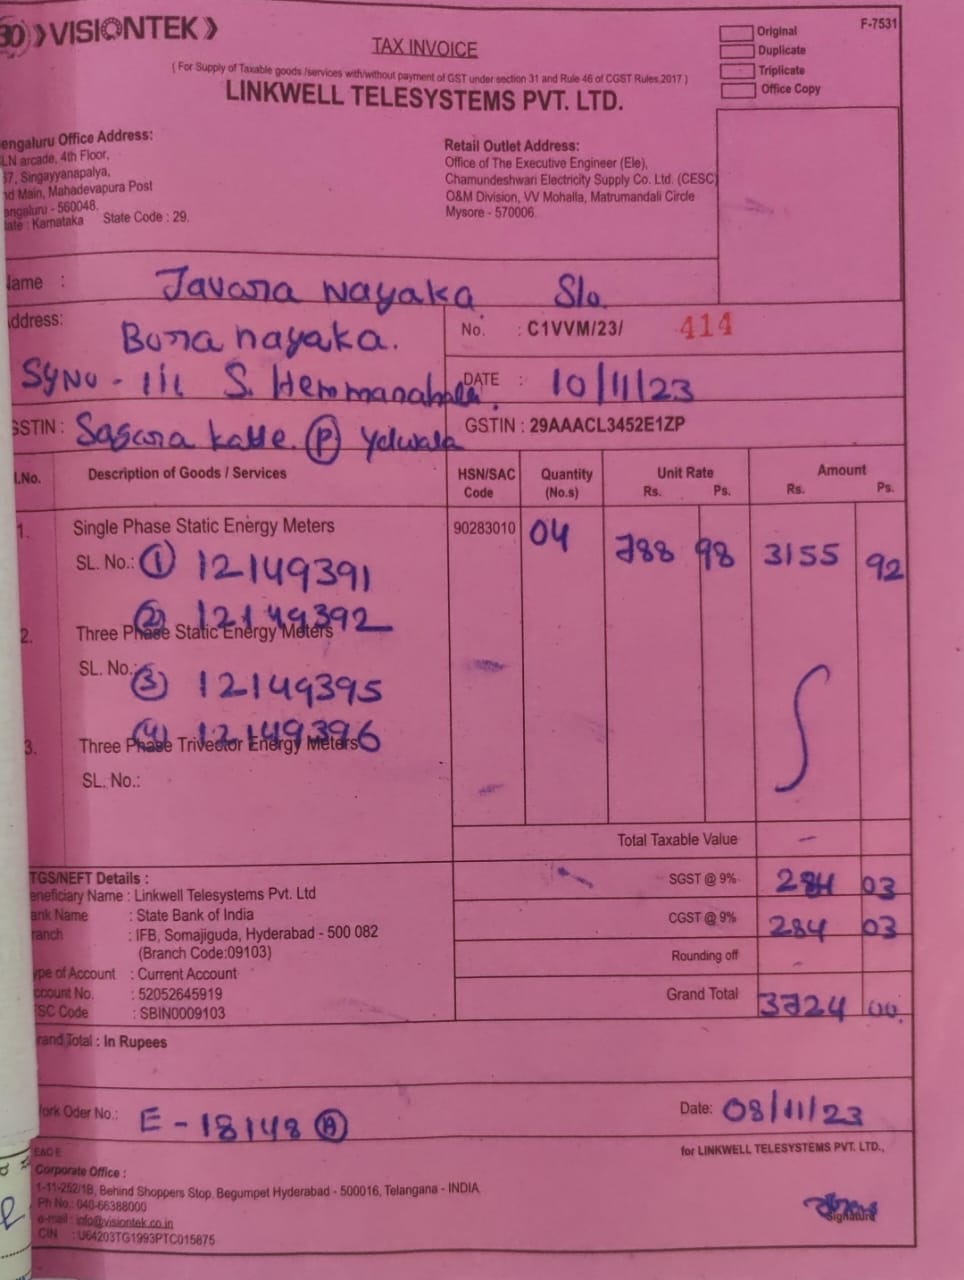 30 VISIONTEK
TAX INVOICE
F-7531
Original
Duplicate
Triplicate
Office Copy
( For Supply of Taxable goods /services with/without payment of GST under section 31 and Rule 46 of CGST Rules,2017 )
LINKWELL TELESYSTEMS PVT. LTD.
engaluru Office Address:
LN arcade, 4th Floor,
37, Singayyanapalya,
nd Main, Mahadevapura Post
angaluru - 560048.
tate : Karnataka State Code : 29.
Retail Outlet Address:
Office of The Executive Engineer (Ele),
Chamundeshwari Electricity Supply Co. Ltd. (CESC)
O&M Division, VV Mohalla, Matrumandali Circle
Mysore - 570006.
ame : Javara Nayaka S/o
ddress: Bora nayaka.
No. : C1VVM/23/ 414
SYNO - 111 S. Hemmanahalli
DATE : 10/11/23
GSTIN : Sagara katte. (P) Yelwala
GSTIN : 29AAACL3452E1ZP
l.No. Description of Goods / Services HSN/SAC Code Quantity (No.s) Unit Rate Rs. Ps. Amount Rs. Ps.
1. Single Phase Static Energy Meters 90283010 04 788 98 3155 92
SL. No.: (1) 12149391
(2) 12149392
2. Three Phase Static Energy Meters
SL. No.:
(3) 12149395
(4) 12149396
3. Three Phase Trivector Energy Meters
SL. No.:
Total Taxable Value -
SGST @ 9% 284 03
CGST @ 9% 284 03
Rounding off -
Grand Total 3724 00.
TGS/NEFT Details :
eneficiary Name : Linkwell Telesystems Pvt. Ltd
ank Name : State Bank of India
ranch : IFB, Somajiguda, Hyderabad - 500 082
(Branch Code:09103)
ype of Account : Current Account
ccount No. : 52052645919
FSC Code : SBIN0009103
rand Total : In Rupees
ork Oder No.: E - 18148 (A)
Date: 08/11/23
for LINKWELL TELESYSTEMS PVT. LTD.,
E&OE
Corporate Office :
1-11-252/1B, Behind Shoppers Stop, Begumpet Hyderabad - 500016, Telangana - INDIA
Ph No.: 040-66388000
e-mail : info@visiontek.co.in
CIN : U64203TG1993PTC015875
Signature